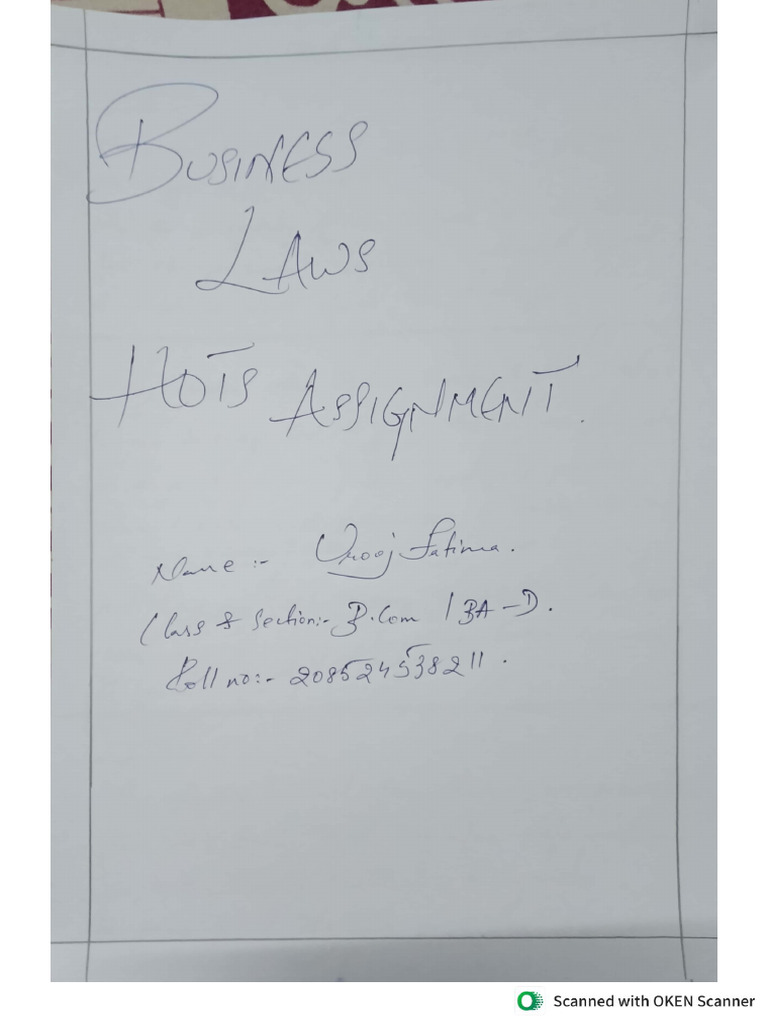 BUSINESS
LAWS
HOTS ASSIGNMENT.
Name :- Urooj Fatima.
Class & Section:- B.Com / BA - D.
Roll no:- 208524538211.
Scanned with OKEN Scanner